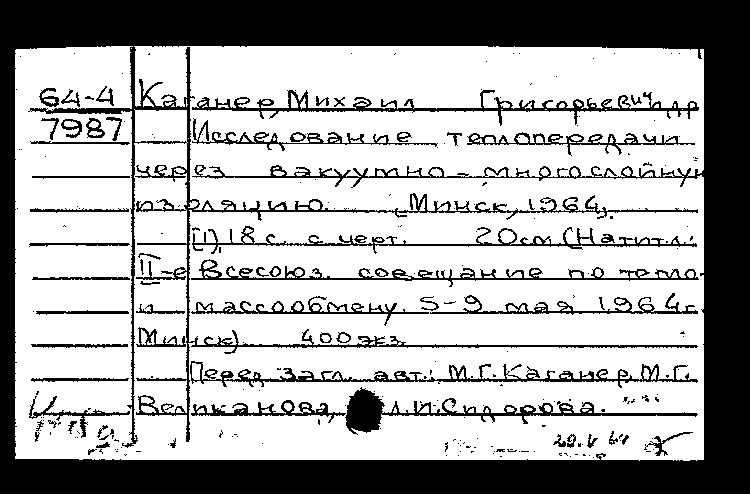 64-4 Каганер, Михаил Григорьевич и др
7987 Исследование теплопередачи
через вакуумно-многослойную
изоляцию. [Минск, 1964].
[1], 18 с. с черт. 20см (На тит.л.:
II-е Всесоюз. совещание по тепло-
и массообмену. 5-9 мая 1964г.
Минск) 400 экз.
Перед загл. авт.: М.Г.Каганер, М.Г.
Великанова, Л.И.Сидорова.